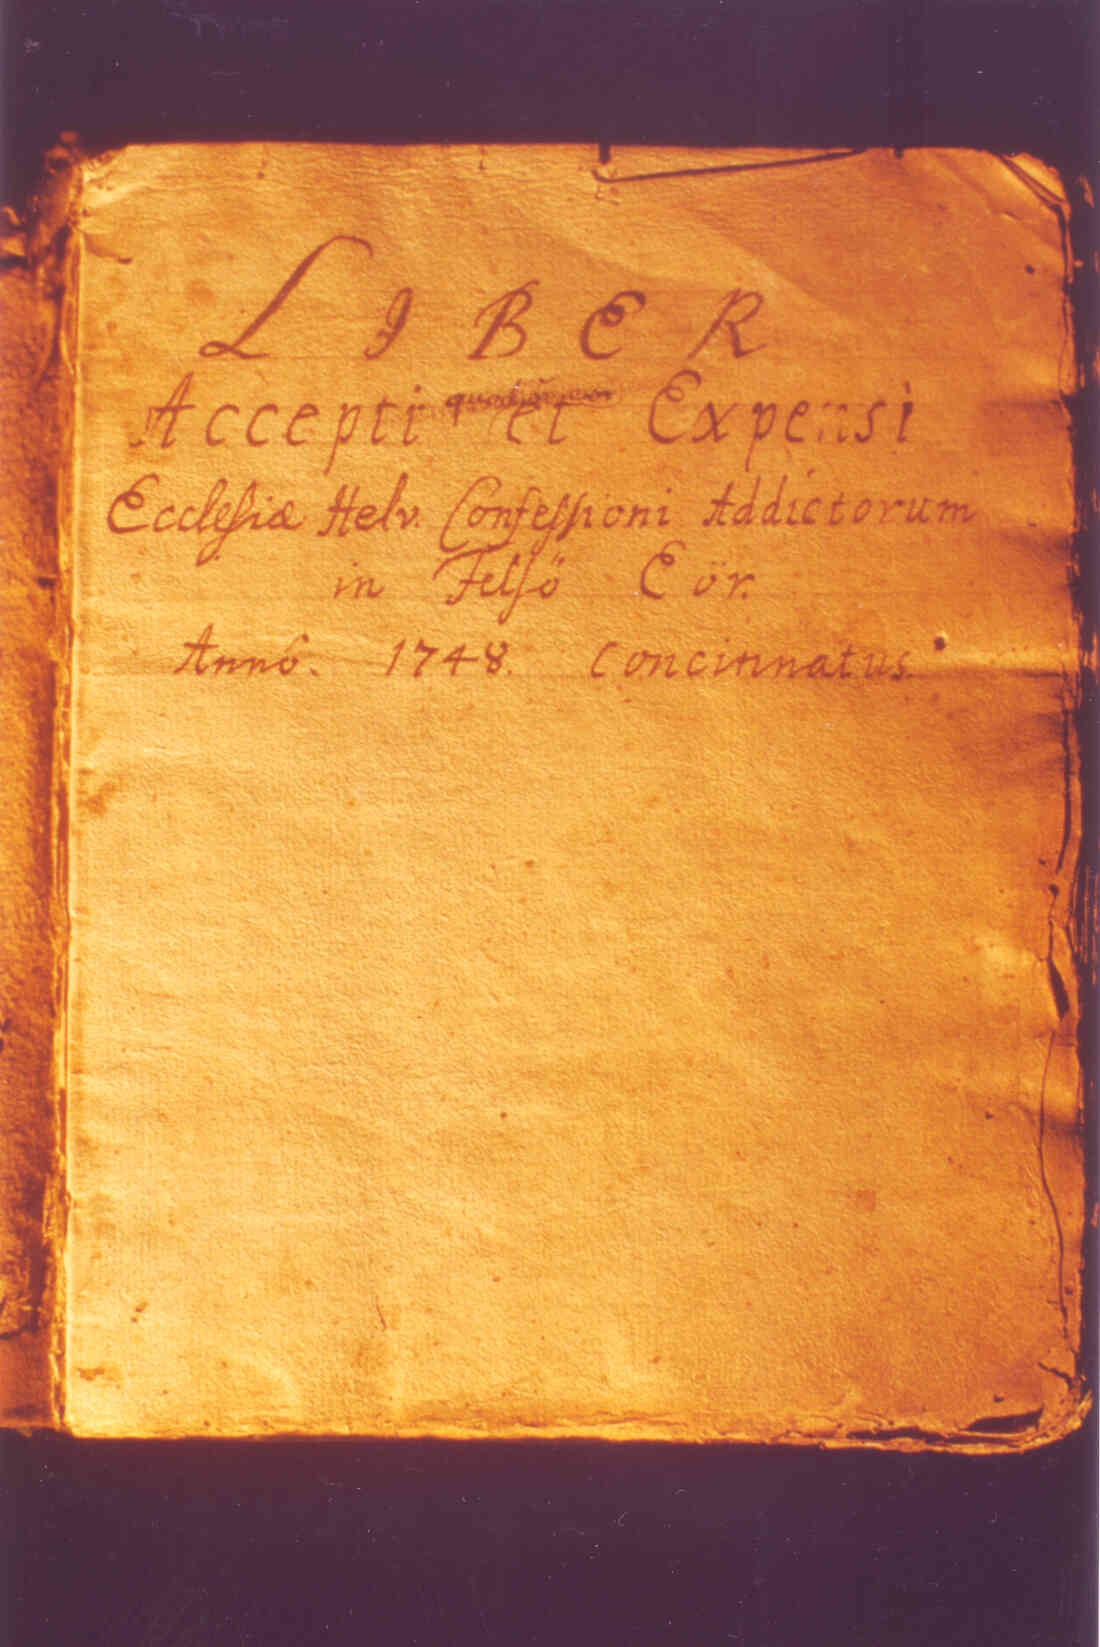 LIBER
Accepti et Expensi
Ecclesiæ Helv. Confessioni Addictorum
in Felsö Eör.
Annô. 1748. Concinnatus.